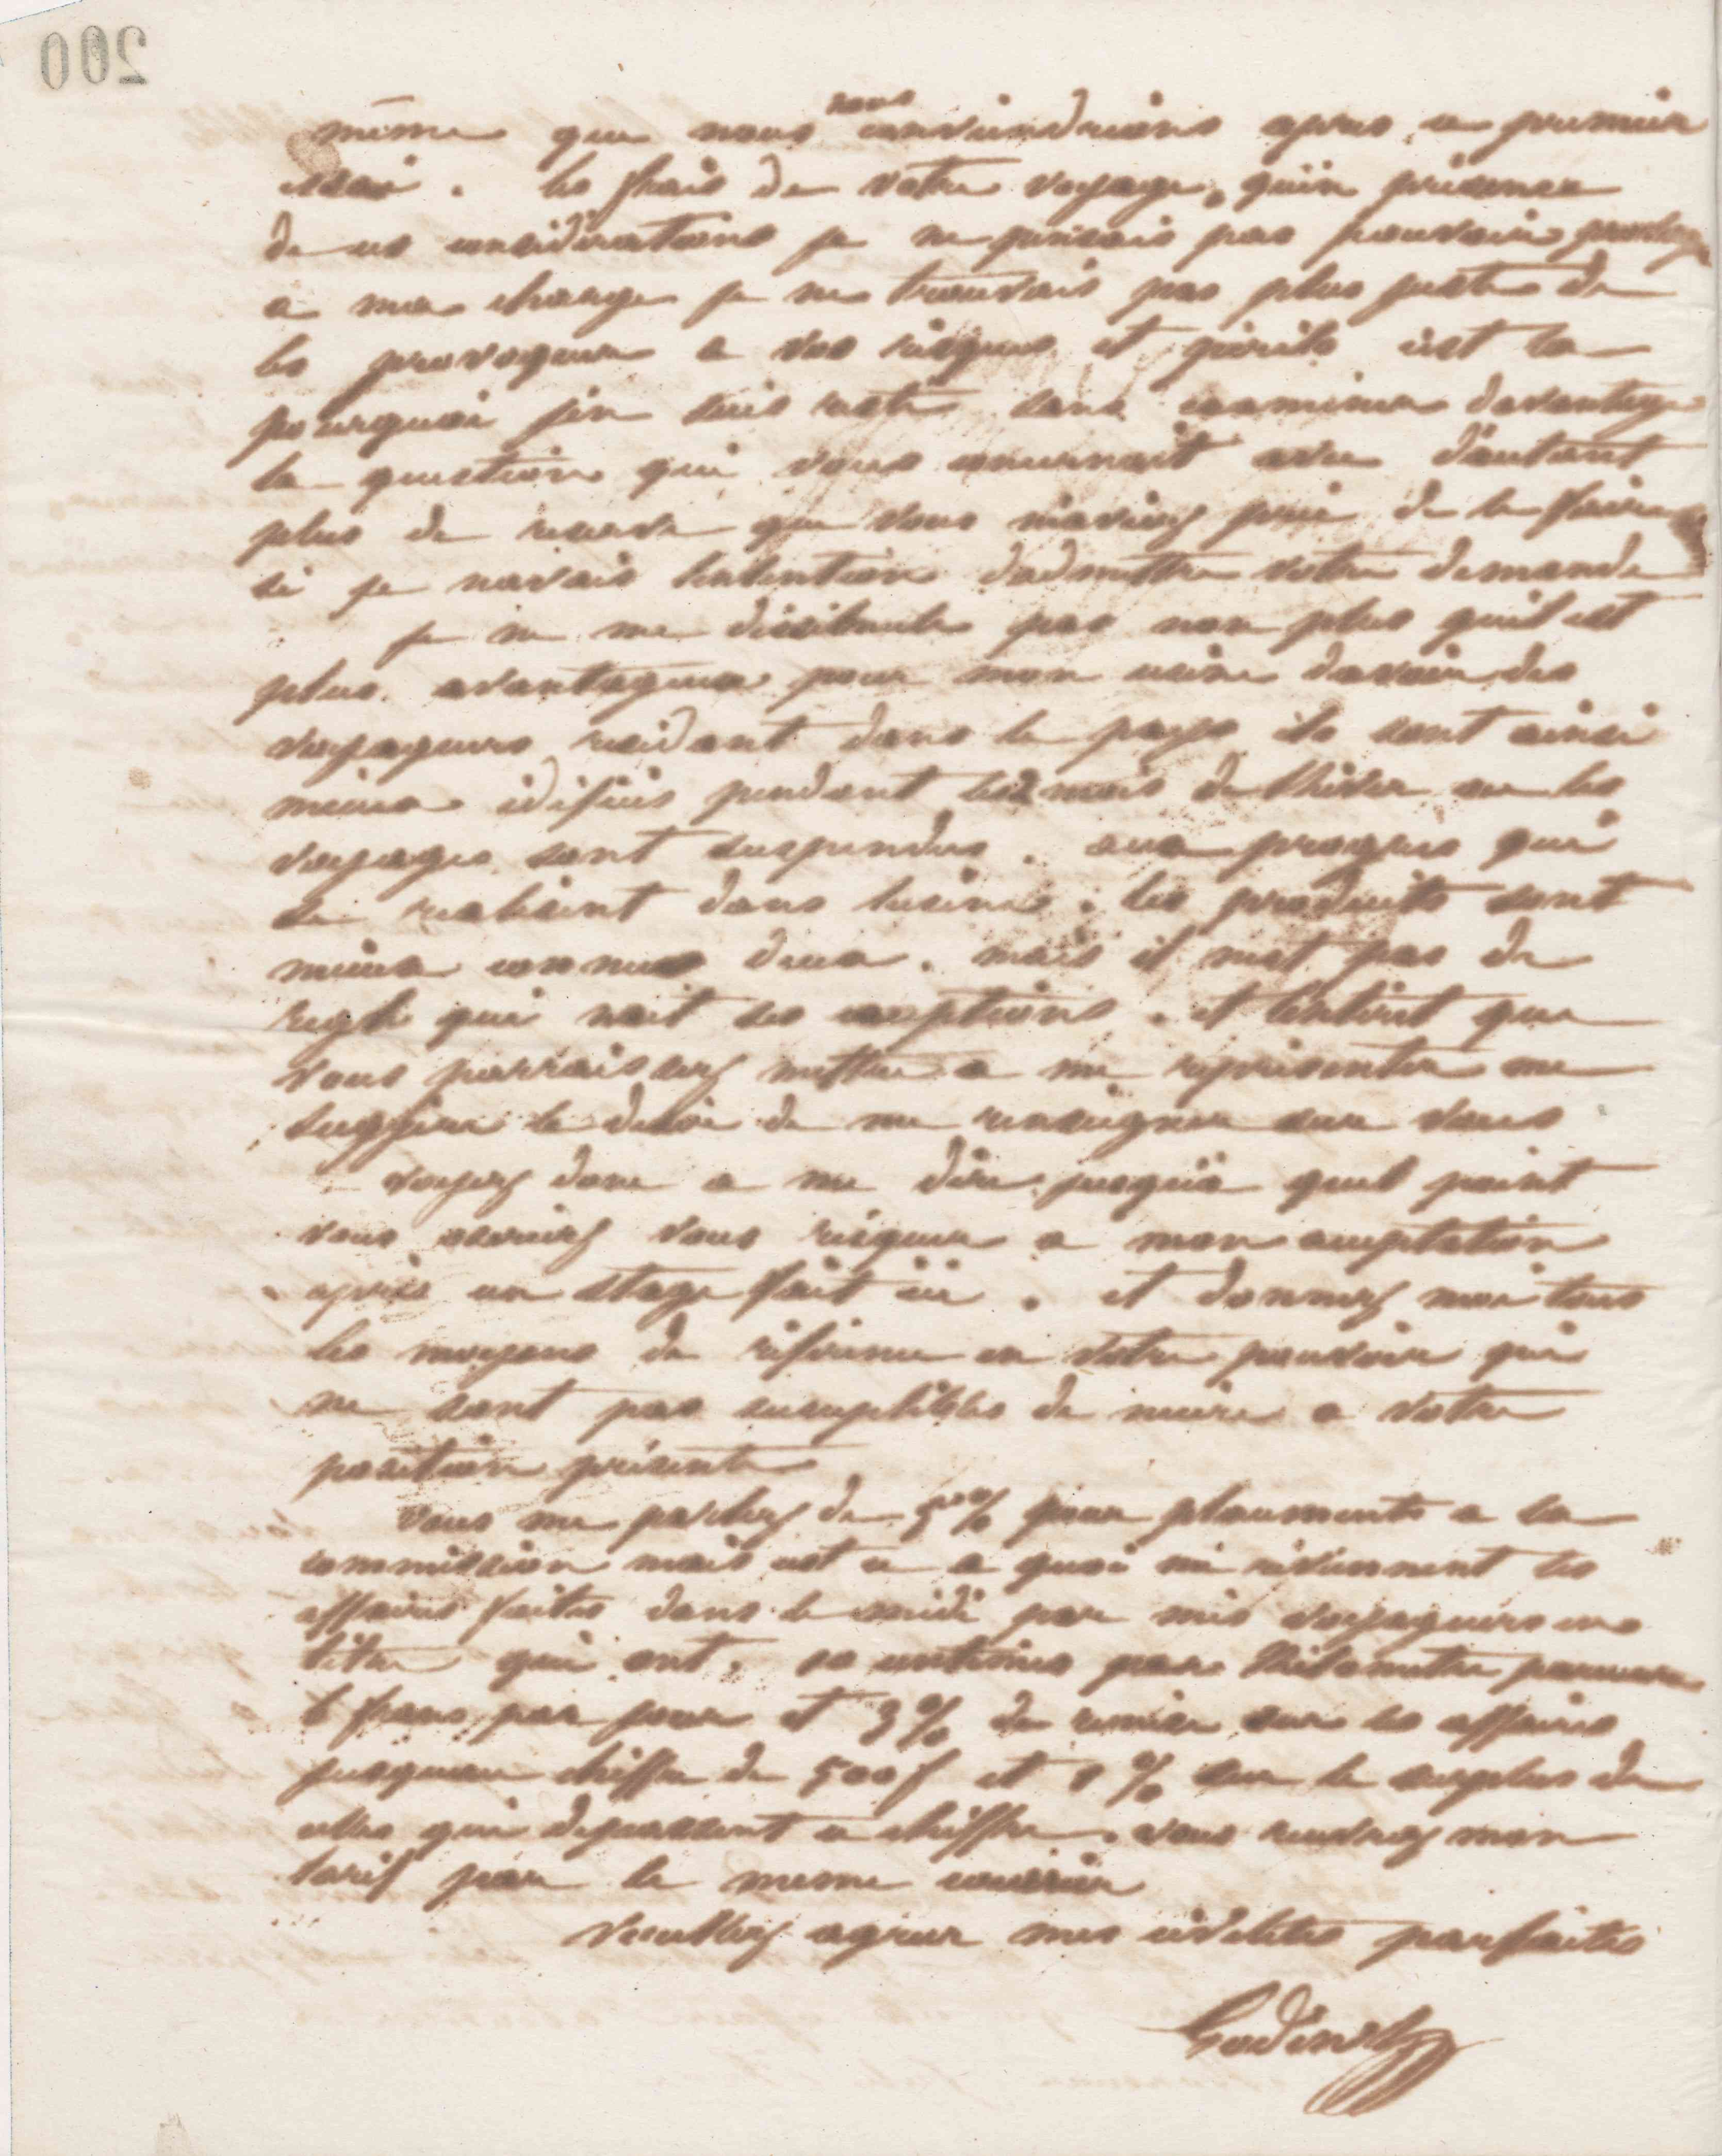 200
nous
même que nous conviendrions apres ce premier
essai. les frais de votre voyage, qu'en présence
de ces considerations je ne pensais pas pouvoir prendre
a ma charge je ne trouvais pas plus juste de
les provoquer a vos risques et périls c'est la
pourquoi j'en suis resté sans examiner davantage
la question qui vous concernait avec d'autant
plus de reserve que vous m'aviez prié de le faire
si je navais lintention dadmettre votre demande
je ne me dissimule pas non plus quil est
plus avantageux pour mon usine davoir des
voyageurs residant dans le pays ils sont ainsi
mieux édifiés pendant les 2 mois de lhiver ou les
voyages sont suspendus. aux progres qui
se realisent dans lusine. les produits sont
mieux connus deux. mais il nest pas de
regle qui nait ses exceptions. et lintéret que
vous parraissez mettre a me représenter me
suggère le desir de me renseigner sur vous
voyez donc a me dire jusqu'à quel point
vous oseriez vous risquer a mon acceptation
après un stage fait ici. et donnez moi tous
les moyens de référence en votre pouvoir qui
ne sont pas susceptibles de nuire a votre
position présente
vous me parlez de 5% pour placements a la
commission mais cest ce a quoi me réviennent les
affaires faites dans le midi par mes voyageurs en
titre qui ont, 10 centimes par kilometre parcouru
6 francs par jour et 3% de remise sur les affaires
jusquau chiffre de 500f et 1% sur le surplus de
celles qui dépassent ce chiffre. vous recevrez mon
tarif par le meme courrier
Veuillez agreer mes civilités parfaites
Godin